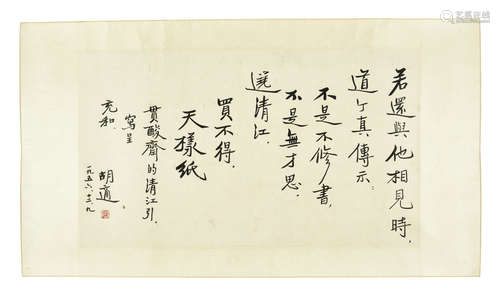 若還與他相見時，
道个真傳示：
不是不修書，
不是無才思，
遶清江，
買不得，
天樣紙
貫酸齋的清江引，
寫呈
充和。
胡適。
一九五六、十二、九